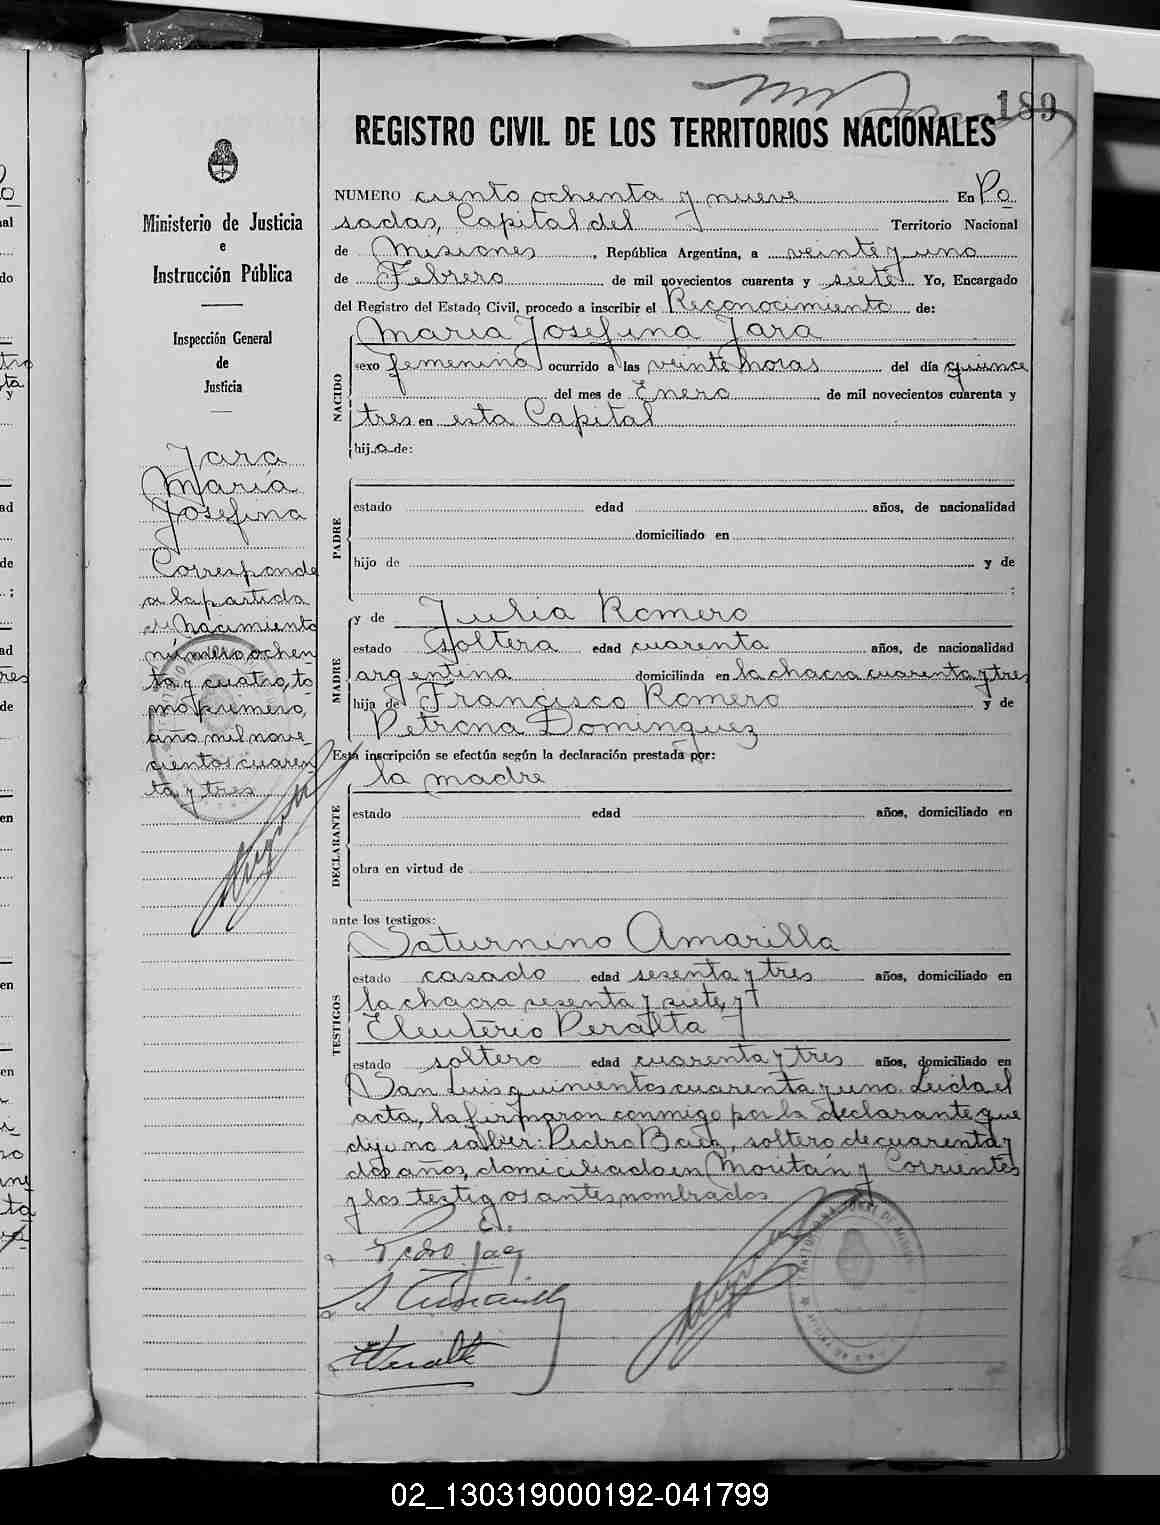 189
REGISTRO CIVIL DE LOS TERRITORIOS NACIONALES
Ministerio de Justicia
e
Instrucción Pública
Inspección General
de
Justicia
Jara
María
Josefina
Corresponde
a la partida
de Nacimiento
número ochen-
ta y cuatro, to-
mo primero,
año mil nove-
cientos cuaren-
ta y tres
NUMERO ciento ochenta y nueve En Po
sadas, Capital del Territorio Nacional
de Misiones, República Argentina, a veinte y uno
de Febrero de mil novecientos cuarenta y siete Yo, Encargado
del Registro del Estado Civil, procedo a inscribir el Reconocimiento de:
María Josefina Jara
NACIDO
sexo femenino ocurrido a las veinte horas del día quince
del mes de Enero de mil novecientos cuarenta y
tres en esta Capital
hija de:
PADRE
estado edad años, de nacionalidad
domiciliado en
hijo de y de
:
MADRE
y de Julia Romero
estado soltera edad cuarenta años, de nacionalidad
argentina domiciliada en la chacra cuarenta y tres
hija de Francisco Romero y de
Petrona Dominguez
Esta inscripción se efectúa según la declaración prestada por:
la madre
DECLARANTE
estado edad años, domiciliado en
obra en virtud de
ante los testigos:
Saturnino Amarilla
TESTIGOS
estado casado edad sesenta y tres años, domiciliado en
la chacra sesenta y siete, y
Eleuterio Peralta
estado soltero edad cuarenta y tres años, domiciliado en
San Luis quinientos cuarenta y uno. Leida el
acta, la firmaron conmigo por la declarante que
dijo no saber: Pedro Baez, soltero de cuarenta y
dos años, domiciliado en Moritán y Corrientes
y los testigos antes nombrados
02_130319000192-041799